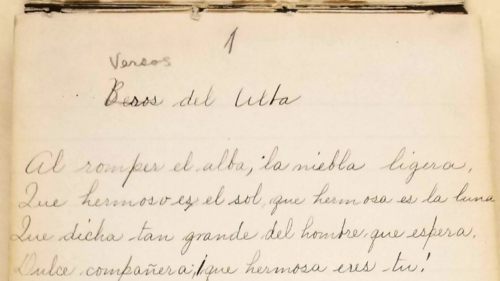 1
Versos
Besos del Alba
Al romper el alba, la niebla ligera,
Que hermoso es el sol, que hermosa es la luna
Que dicha tan grande del hombre que espera.
Dulce compañera; ¡que hermosa eres tu!